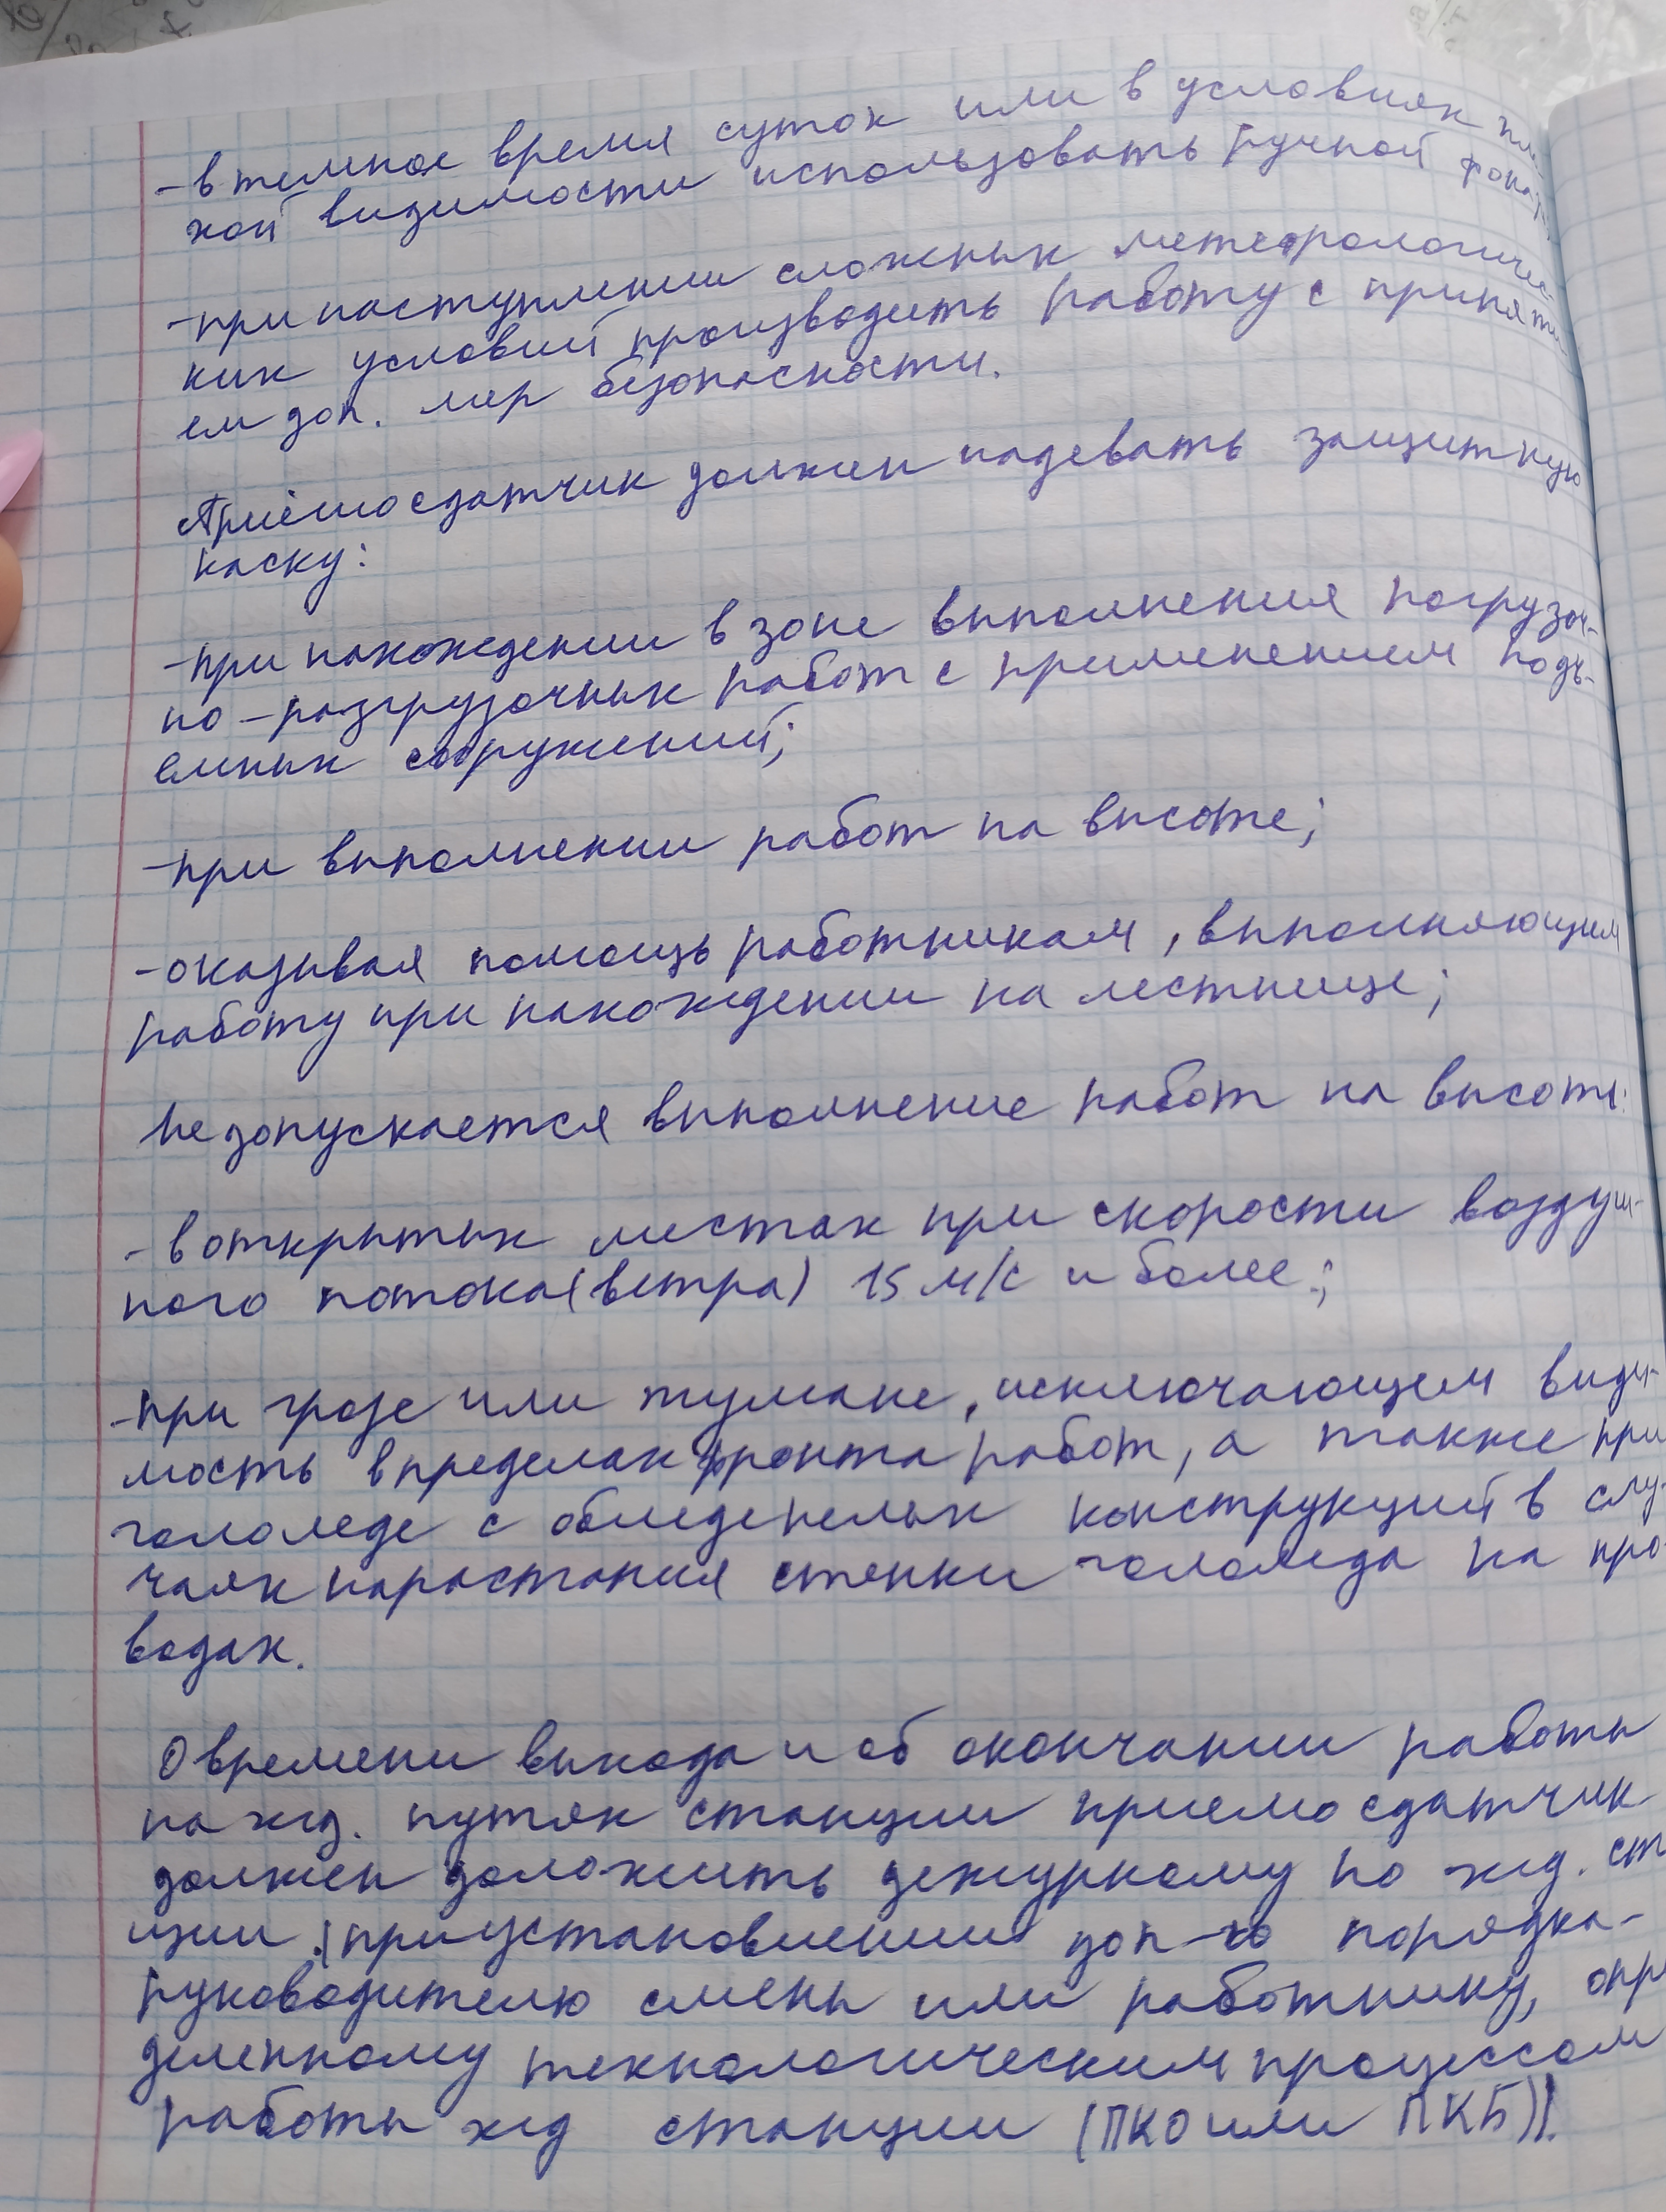 - в темное время суток или в условиях пло-
хой видимости использовать ручной фонарь
- при наступлении сложных метеорологичес-
ких условий производить работу с приняти-
ем доп. мер безопасности.
Приёмосдатчик должен надевать защитную
каску:
- при нахождении в зоне выполнения погрузоч-
но - разгрузочных работ с применением подъ-
емных сооружений;
- при выполнении работ на высоте;
- оказывая помощь работникам, выполняющим
работу при нахождении на лестнице;
Не допускается выполнение работ на высоте:
- в открытых местах при скорости воздуш-
ного потока (ветра) 15 м/с и более;
- при грозе или тумане, исключающем види-
мость в пределах фронта работ, а также при
гололеде с обледенелых конструкций в слу-
чаях нарастания стенки гололеда на про-
водах.
О времени выхода и об окончании работы
на жд. путях станции приемосдатчик
должен доложить дежурному по жд. ст
нции (при установлении доп-го порядка -
руководителю смены или работнику, опре
деленному технологическим процессом
работы жд станции (ПКО или ПКБ)).